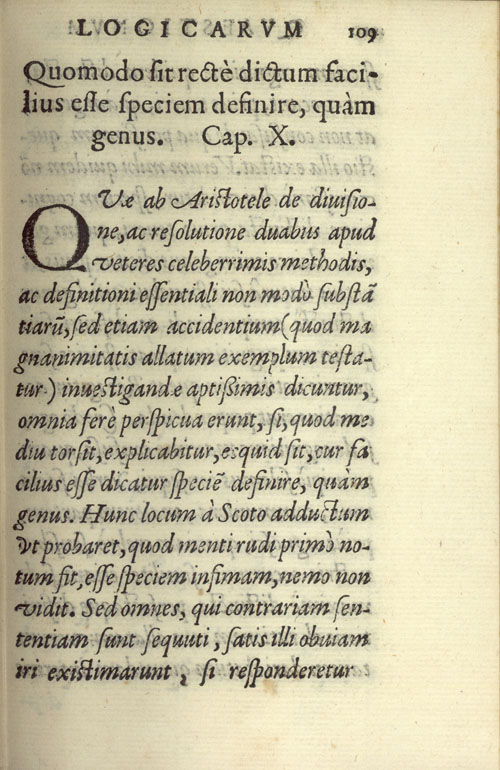 LOGICARVM 109
Quomodo sit rectè dictum faci-
lius esse speciem definire, quàm
genus. Cap. X.
QVæ ab Aristotele de diuisio-
ne, ac resolutione duabus apud
veteres celeberrimis methodis,
ac definitioni essentiali non modò substā
tiarū, sed etiam accidentium (quod ma
gnanimitatis allatum exemplum testa-
tur) inuestigandæ aptißimis dicuntur,
omnia ferè perspicua erunt, si, quod me
diu torsit, explicabitur, ecquid sit, cur fa
cilius esse dicatur speciē definire, quàm
genus. Hunc locum à Scoto adductum
vt probaret, quod menti rudi primò no-
tum fit, esse speciem infimam, nemo non
vidit. Sed omnes, qui contrariam sen-
tentiam sunt sequuti, satis illi obuiam
iri existimarunt, si responderetur